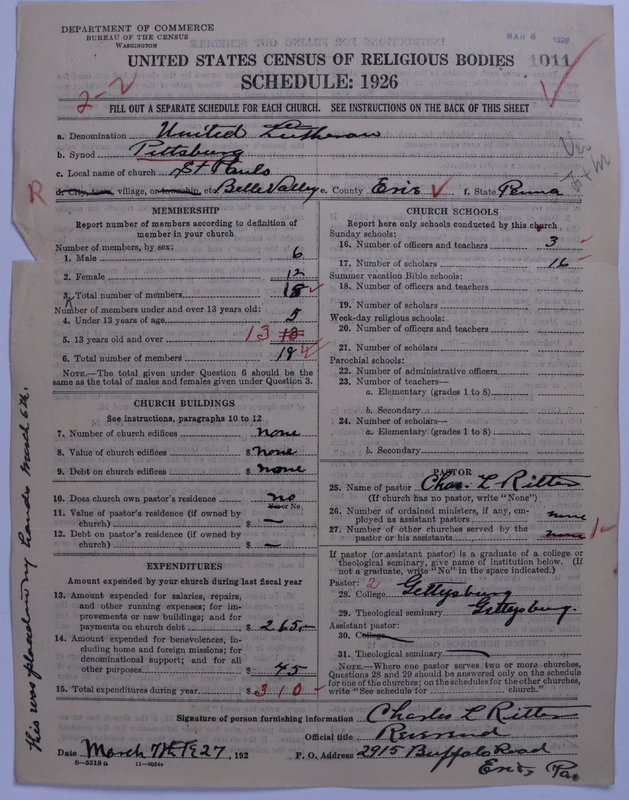 DEPARTMENT OF COMMERCE
BUREAU OF THE CENSUS
WASHINGTON
MAR 8 1927
UNITED STATES CENSUS OF RELIGIOUS BODIES 1011
SCHEDULE: 1926
2-2
FILL OUT A SEPARATE SCHEDULE FOR EACH CHURCH. SEE INSTRUCTIONS ON THE BACK OF THIS SHEET
a. Denomination United Lutheran
b. Synod Pittsburg
c. Local name of church St Pauls
R
d. City, town, village, or township, etc Belle Valley e. County Erie f. State Penna
MEMBERSHIP
Report number of members according to definition of
member in your church
Number of members, by sex:
1. Male 6
2. Female 12
3. Total number of members 18
Number of members under and over 13 years old:
4. Under 13 years of age 5
5. 13 years old and over 13
6. Total number of members 18
NOTE.—The total given under Question 6 should be the
same as the total of males and females given under Question 3.
CHURCH BUILDINGS
See instructions, paragraphs 10 to 12
7. Number of church edifices none
8. Value of church edifices $ none
9. Debt on church edifices $ none
10. Does church own pastor's residence no
Yes or No
11. Value of pastor's residence (if owned by
church) $ —
12. Debt on pastor's residence (if owned by
church) $ —
EXPENDITURES
Amount expended by your church during last fiscal year
13. Amount expended for salaries, repairs,
and other running expenses; for im-
provements or new buildings; and for
payments on church debt $ 265.—
14. Amount expended for benevolences, in-
cluding home and foreign missions; for
denominational support; and for all
other purposes $ 45
15. Total expenditures during year $ 310 —
CHURCH SCHOOLS
Report here only schools conducted by this church
Sunday schools:
16. Number of officers and teachers 3
17. Number of scholars 16
Summer vacation Bible schools:
18. Number of officers and teachers
19. Number of scholars
Week-day religious schools:
20. Number of officers and teachers
21. Number of scholars
Parochial schools:
22. Number of administrative officers
23. Number of teachers—
a. Elementary (grades 1 to 8)
b. Secondary
24. Number of scholars—
a. Elementary (grades 1 to 8)
b. Secondary
PASTOR
25. Name of pastor Chas. L Ritter
(If church has no pastor, write "None")
26. Number of ordained ministers, if any, em-
ployed as assistant pastors none
27. Number of other churches served by the
pastor or his assistants none 1
If pastor (or assistant pastor) is a graduate of a college or
theological seminary, give name of institution below. (If
not a graduate, write "No" in the space indicated.)
Pastor: 2
28. College Gettysburg
29. Theological seminary Gettysburg.
Assistant pastor:
30. College
31. Theological seminary
NOTE.—Where one pastor serves two or more churches,
Questions 28 and 29 should be answered only on the schedule
for one of the churches; on the schedules for the other churches,
write "See schedule for church."
Signature of person furnishing information Charles L Ritter
Official title Reverend
Date March 7th 1927, 192 P. O. Address 2915 Buffalo Road
Erie, Pa.
8—5518 a 11—9654
this was placed in my hands March 6th.